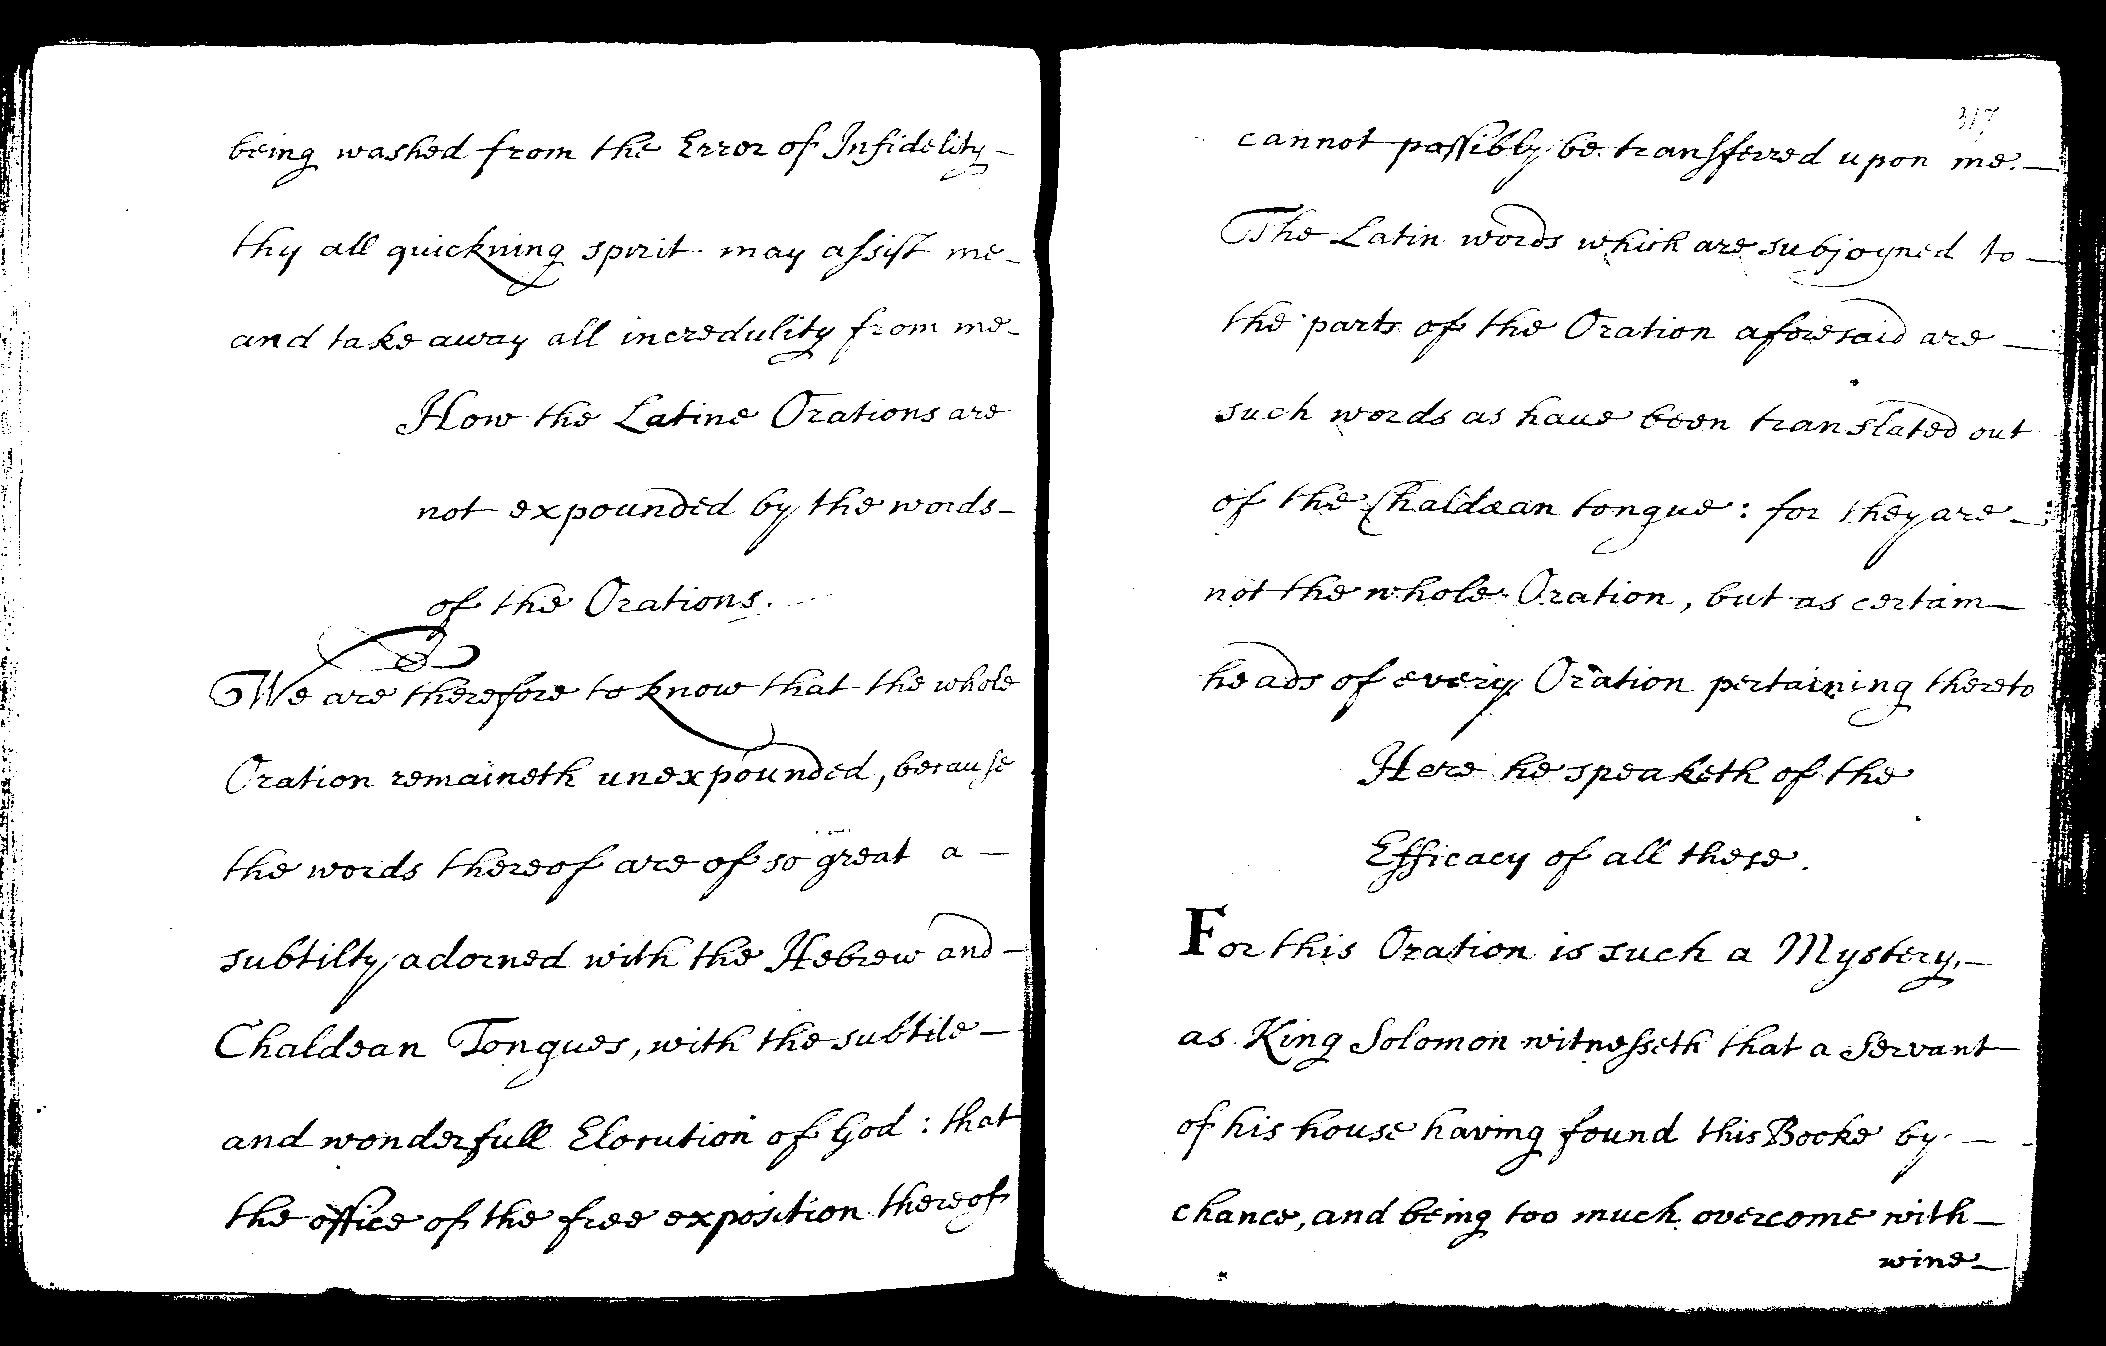 being washed from the Error of Infidelity
thy all quickning spirit may assist me
and take away all incredulity from me
How the Latine Orations are
not expounded by the words
of the Orations.
We are therefore to know that the whole
Oration remaineth unexpounded, because
the words thereof are of so great a
subtilty adorned with the Hebrew and
Chaldean Tongues, with the subtile
and wonderfull Elocution of God : that
the office of the free exposition thereof
317
cannot possibly be transferred upon me.
The Latin words which are subjoyned to
the parts of the Oration aforesaid are
such words as haue been translated out
of the Chaldæan tongue : for they are
not the whole Oration, but as certain
heads of every Oration pertaining thereto
Here he speaketh of the
Efficacy of all these.
For this Oration is such a Mystery,
as King Solomon witnesseth that a Servant
of his house having found this Booke by
chance, and being too much overcome with
wine